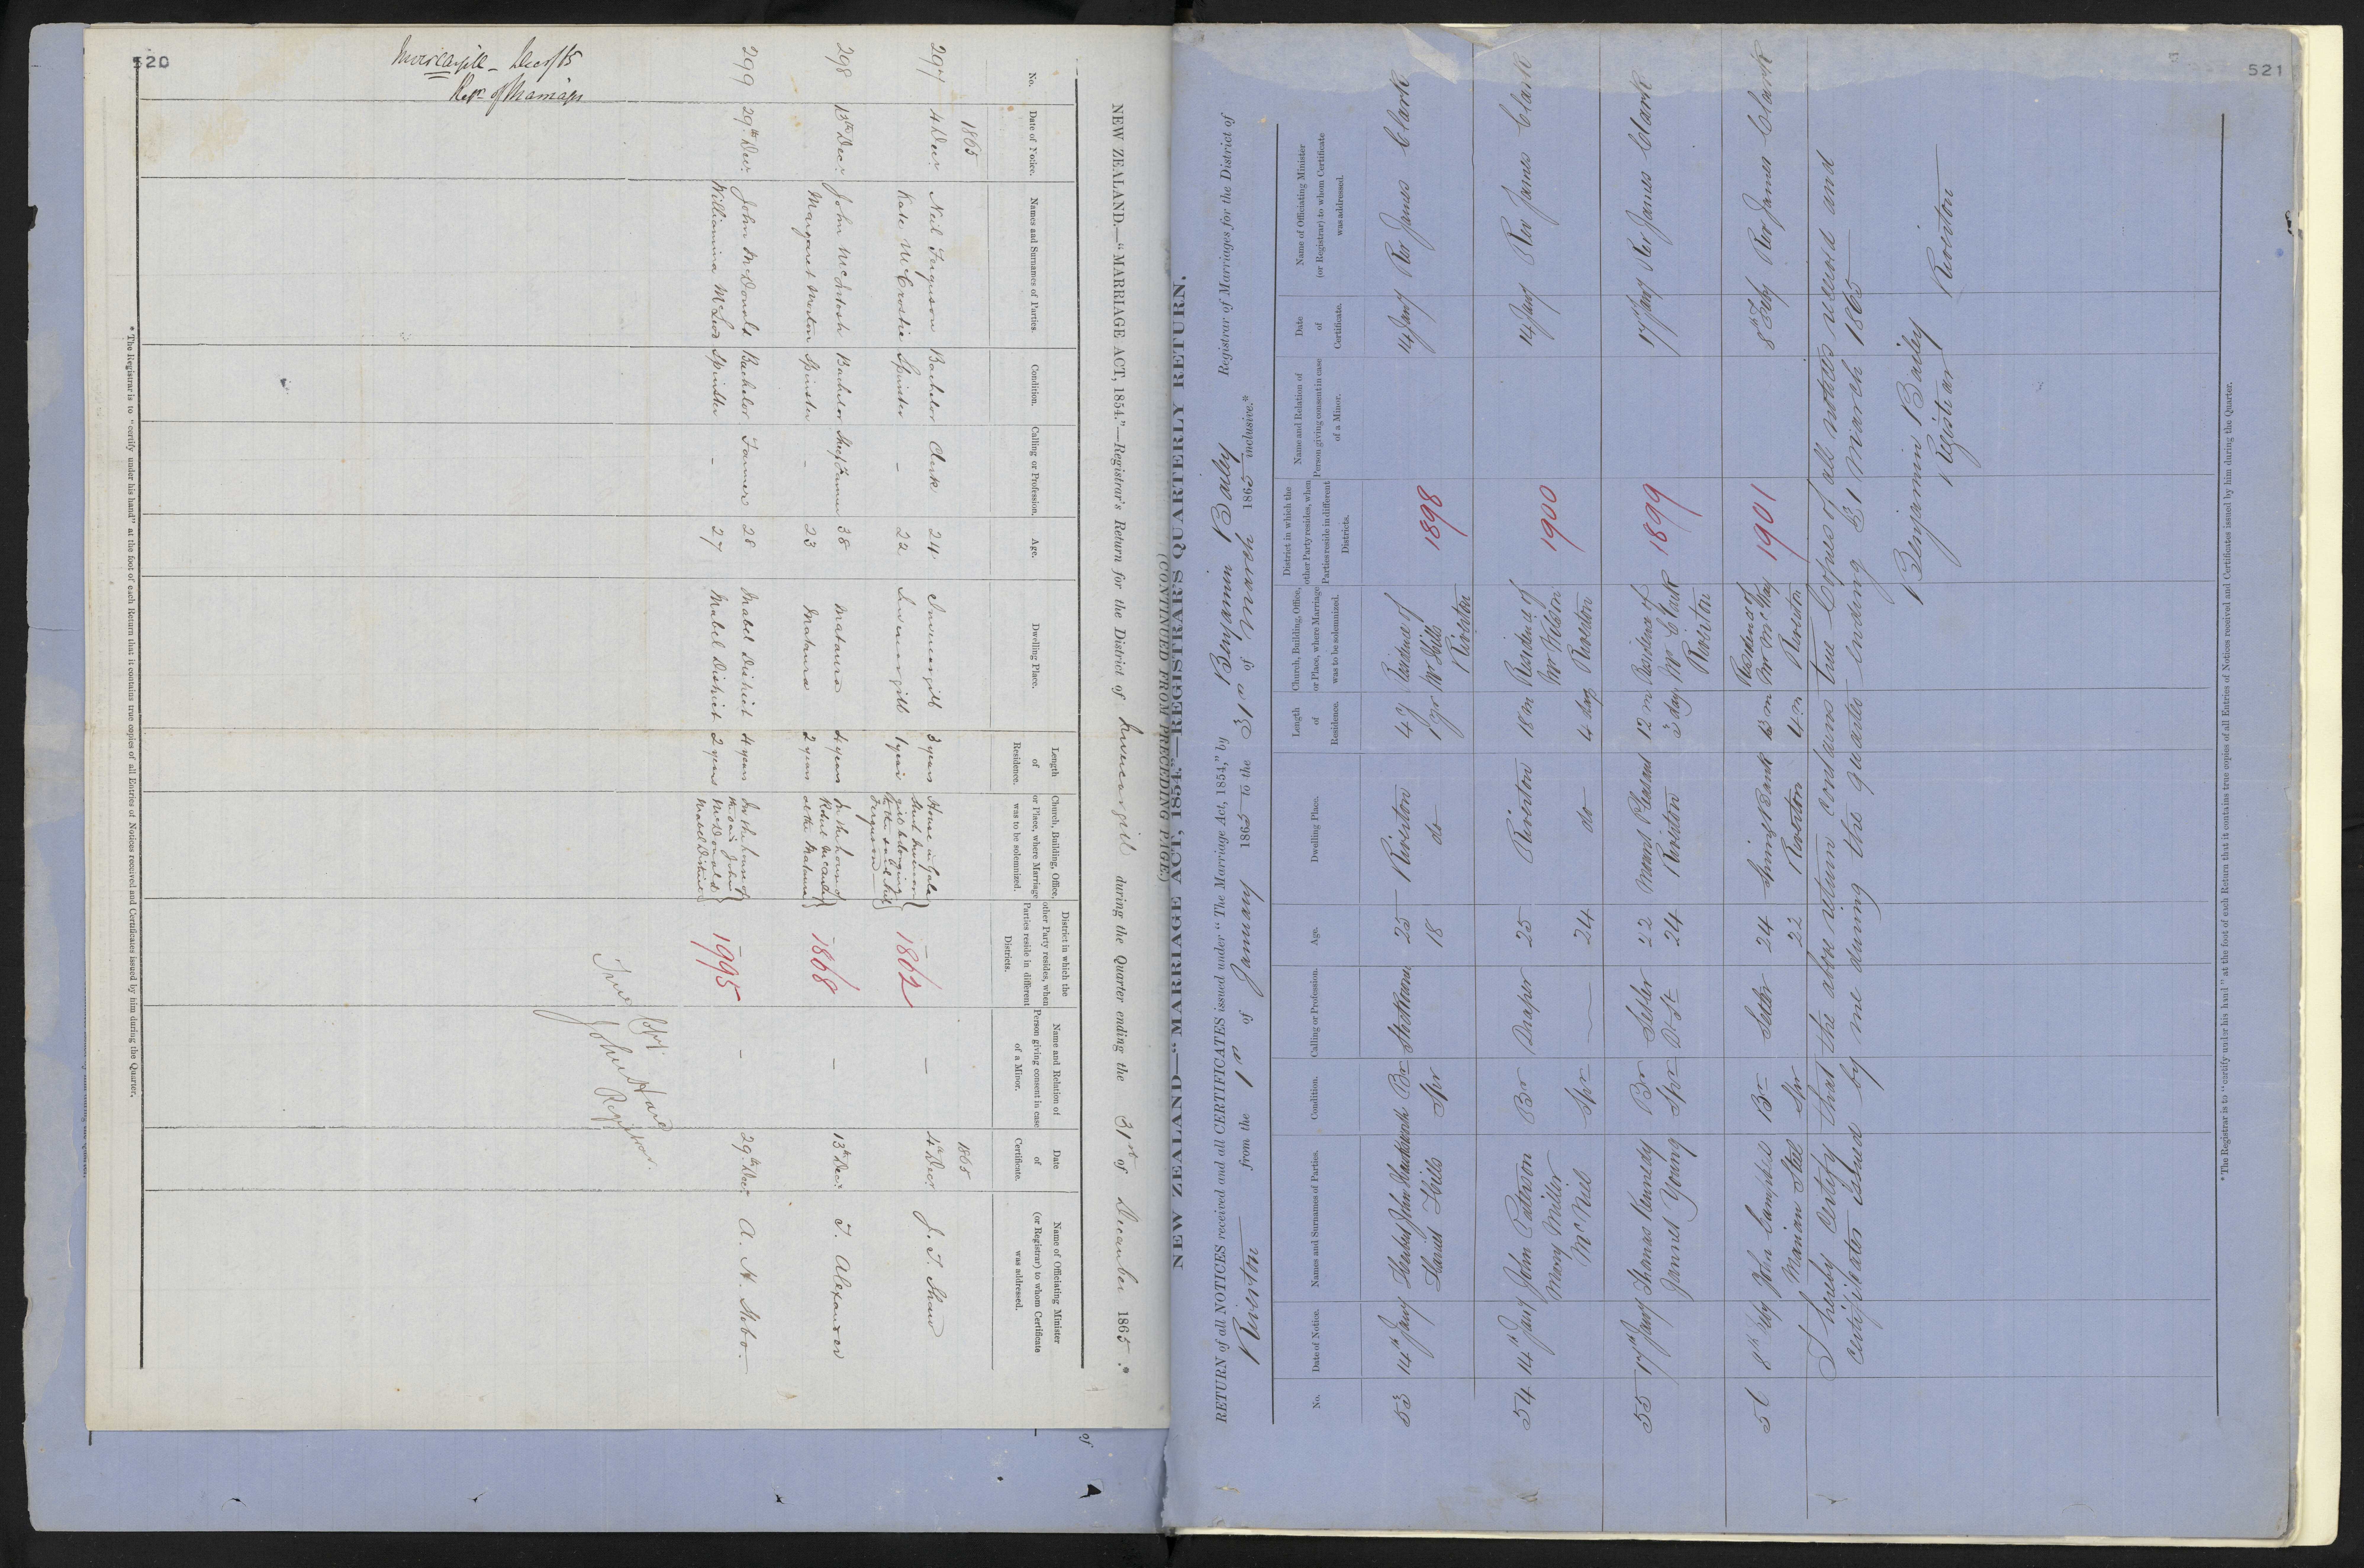 520
Invercargill - Decr/65
Regr. of Marriages
NEW ZEALAND.—"MARRIAGE ACT, 1854."—Registrar's Return for the District of Invercargill during the Quarter ending the 31st of December 1865.*
No. Date of Notice. Names and Surnames of Parties. Condition. Calling or Profession. Age. Dwelling Place. Length of Residence. Church, Building, Office, or Place, where Marriage was to be solemnized. District in which the other Party resides, when Parties reside in different Districts. Name and Relation of Person giving consent in case of a Minor. Date of Certificate. Name of Officiating Minister (or Registrar) to whom Certificate was addressed.
1865 1865
297 4 Decr Neil Ferguson Bachelor Clerk 24 Invercargill 3 years House in Gala Street Invercargill belonging to the said Neil Ferguson 1862 — 4th Decr J. T. Shaw
Kate McCrostie Spinster — 22 Invercargill 1 year
298 13th Decr John McIntosh Bachelor 38 Mataura 4 years In the house of at the Mataura 1868 — 13th Decr T. Alexander
Margaret Morton Spinster — 23 Mataura 2 years
299 29th Decr John McDonald Bachelor Farmer 28 Mabel District 4 years In the house of the said John McDonald Mabel District 1995 — 29th Decr A. H. Stobo
Williamina McLeod Spinster — 27 Mabel District 2 years
True Copy.
John Hare
Registrar.
*The Registrar is to "certify under his hand" at the foot of each Return that it contains true copies of all Entries of Notices received and Certificates issued by him during the Quarter.
521
NEW ZEALAND—"MARRIAGE ACT, 1854."—REGISTRAR'S QUARTERLY RETURN.
(CONTINUED FROM PRECEDING PAGE.)
RETURN of all NOTICES received and all CERTIFICATES issued under "The Marriage Act, 1854," by Benjamin Bailey Registrar of Marriages for the District of
Riverton from the 1st of January 1865 to the 31st of March 1865 inclusive.*
No. Date of Notice. Names and Surnames of Parties. Condition. Calling or Profession. Age. Dwelling Place. Length of Residence. Church, Building, Office, or Place, where Marriage was to be solemnized. District in which the other Party resides, when Parties reside in different Districts. Name and Relation of Person giving consent in case of a Minor. Date of Certificate. Name of Officiating Minister (or Registrar) to whom Certificate was addressed.
53 14th Jany Herbert John Br 25 Riverton 4 y Residence of Mr Hills Riverton 1898 14 Jany Rev James Clark
Harriet Hills Spr 18 do 1 yr
54 14th Jany John Paterson Br Draper 25 Riverton 18 m Residence of Mr Wilson Riverton 1900 14 Jany Rev James Clark
Mary Miller McNeil Spr — 24 do 4 days
55 17th Jany Thomas Kennedy Br Settler 22 Mount Pleasant 12 m Residence of Mr Clark Riverton 1899 17th Jany Rev James Clark
Jannet Young Spr 24 Riverton 3 days
56 8th Feby John Campbell Br Settler 24 Spring Bank 13 m Residence of Mr McKay Riverton 1901 8th Feby Rev James Clark
Marian Steel Spr 22 Riverton 4 m
I hereby Certify that the above return contains true Copies of all notices received and
certificates issued by me during the quarter ending 31 March 1865
Benjamin Bailey
Registrar Riverton
*The Registrar is to "certify under his hand" at the foot of each Return that it contains true copies of all Entries of Notices received and Certificates issued by him during the Quarter.
of